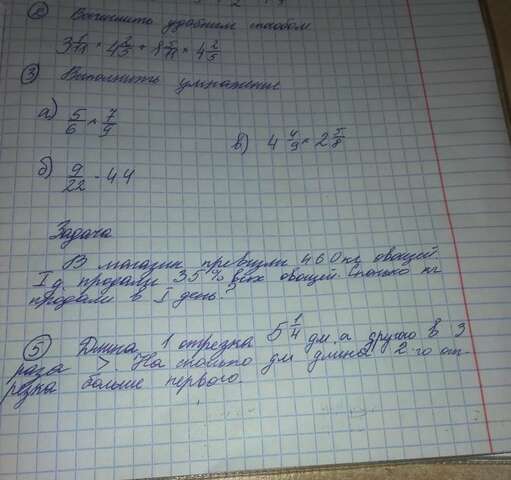 ② Вычислить удобным способом
3 6/11 × 4 2/5 + 8 5/11 × 4 2/5
③ Выполнить умножение
а) 5/6 × 7/9
в) 4 4/9 × 2 5/8
б) 9/22 · 44
Задача
В магазин привезли 460 кг овощей.
I д. продали 35% всех овощей. Сколько кг
продали в I день?
⑤ Длина 1 отрезка 5 1/4 дм, а другого в 3
раза >. На сколько дм длина 2-го от-
резка больше первого.